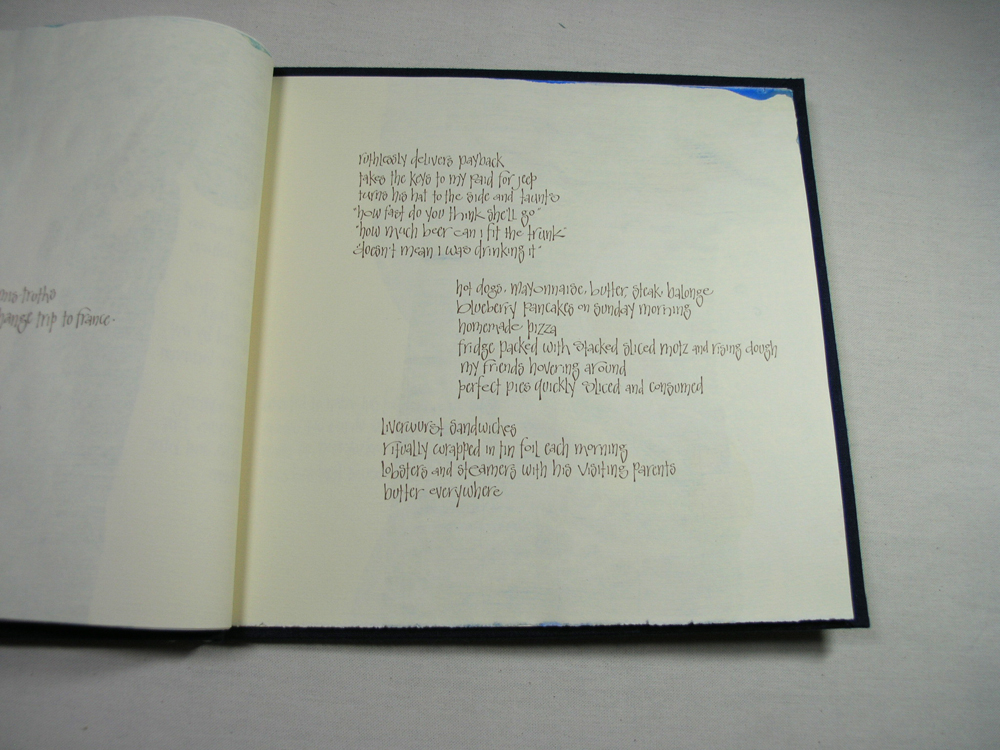 truths
change trip to france.
ruthlessly delivers payback
takes the keys to my paid for jeep
turns his hat to the side and taunts
"how fast do you think she'll go"
"how much beer can i fit the trunk"
"doesn't mean i was drinking it"
hot dogs, mayonnaise, butter, steak, balonge
blueberry pancakes on sunday morning
homemade pizza
fridge packed with stacked sliced motz and rising dough
my friends hovering around
perfect pies quickly sliced and consumed
liverwurst sandwiches
ritually wrapped in tin foil each morning
lobsters and steamers with his visiting parents
butter everywhere